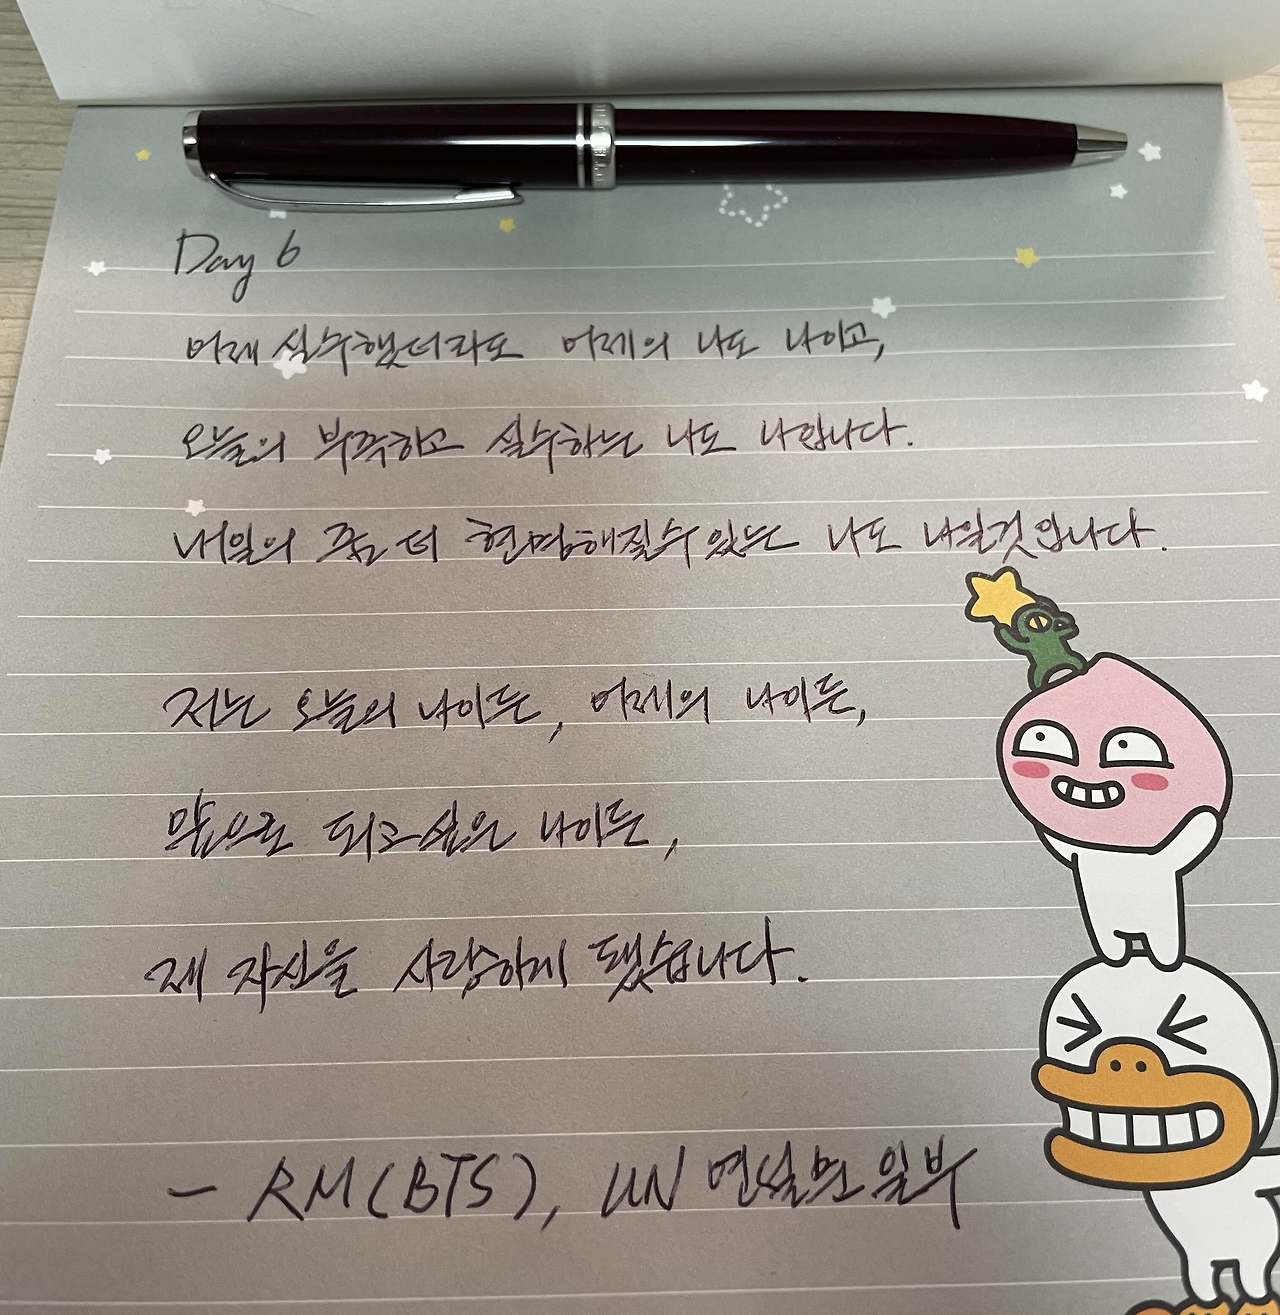 Day 6
어제 실수했더라도 어제의 나도 나이고,
오늘의 부족하고 실수하는 나도 나입니다.
내일의 좀 더 현명해질수있는 나도 나일것입니다.
저는 오늘의 나이든, 어제의 나이든,
앞으로 되고싶은 나이든,
제 자신을 사랑하게 됐습니다.
– RM(BTS), UN 연설문 일부